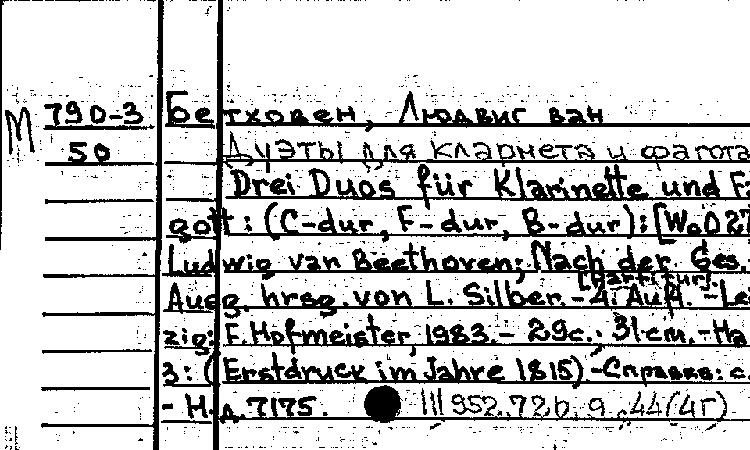 М 790-3 Бетховен, Людвиг ван
50 Дуэты для кларнета и фагота
Drei Duos für Klarinette und Fa
gott : (C-dur, F-dur, B-dur) : [WoO 27
Ludwig van Beethoven; Nach der Ges.
[Partitur].
Ausg. hrsg. von L. Silber. - 4. Aufl. - Le
zig: F. Hofmeister, 1983. - 29c.; 31 cm. - Ha
з: (Erstdruck im Jahre 1815) - Справка: с.
- Н.д. 7175. III 952.72b.9.,44(4Г)